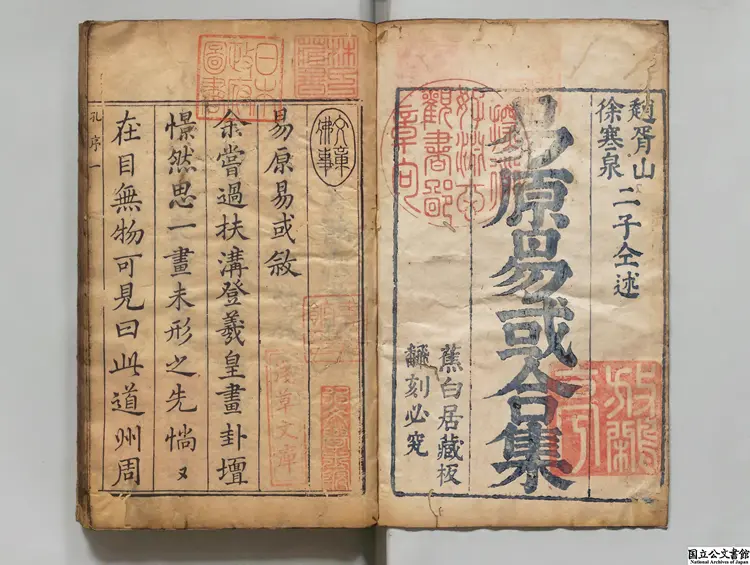 趙胥山
徐寒泉
二子仝述
易原易或合集
蕉白居藏板
飜刻必究
林氏藏書
日本政府圖書
文章佛事
易原易或敘
余嘗過扶溝登羲皇畫卦壇
憬然思一畫未形之先惝〻
在目無物可見曰此道州周
淺草文庫
孔序一
国立公文書館
National Archives of Japan